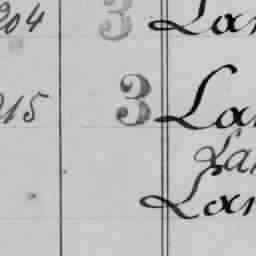 204 3 Lan
215 3 Lan
Lan
Lan